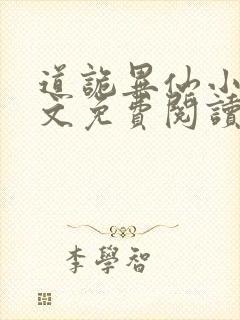 道詭異仙小
文免費閱讀
李學智